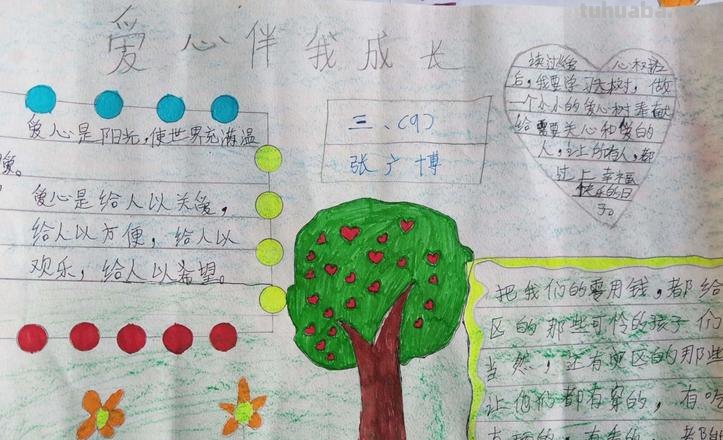 tuhuaba.
爱心伴我成长
三、(9)
张广博
爱心是阳光,使世界充满温
暖。
爱心是给人以关爱,
给人以方便,给人以
欢乐,给人以希望。
读过《爱心树》
后,我要学习大树,做
一个小小的爱心树奉献
给需要关心和爱的
人,让所有人,都
过上幸福
快乐的日
子。
把我们的零用钱,都给
区的那些可怜的孩子们
当然,还有灾区的那些
让他们都有穿的,有吃